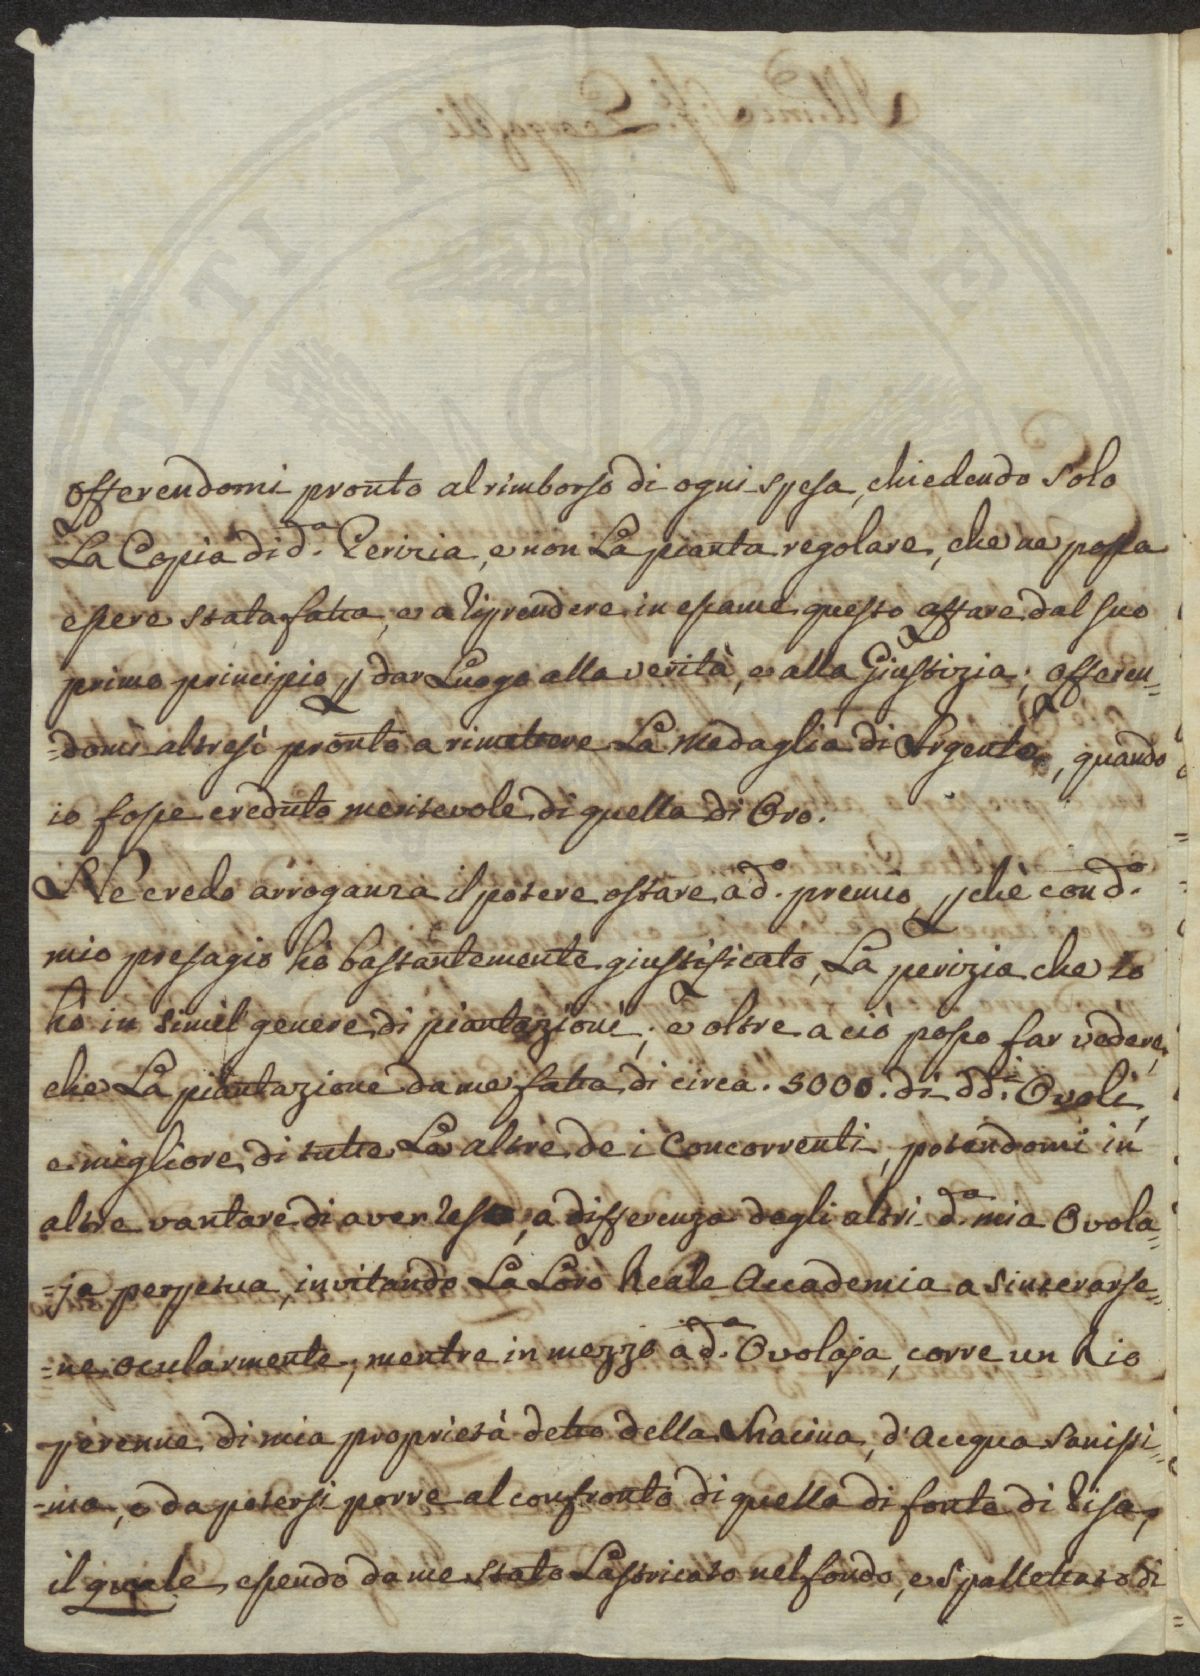 offerendomi pronto al rimborso di ogni spesa, chiedendo solo
La Copia di d.ª Perizia, e non La pianta regolare, che ne possa
essere stata fatta, e a riprendere in esame questo affare dal suo
primo principio p dar Luogo alla verità, e alla Giustizia; offeren=
=domi altresì pronto a rimettere La Medaglia di Argento, quando
io fosse creduto meritevole di quella di Oro.
Ne credo arroganza il potere ostare a d.º premio, pchè con d.º
mio presagio hò bastantemente giustificato, La perizia che io
hò in simil genere di piantazioni; e oltre a ciò posso far vedere,
che La piantazione da me fatta di circa. 3000. di dd.i Ovoli,
e migliore di tutte Le altre de i Concorrenti, potendomi in
altre vantare di aver reso, a differenza degli altri d.ª mia Ovola=
=ja perpetua, invitando La Loro Reale Accademia a sincerarse=
=ne ocularmente, mentre in mezzo a d.ª Ovolaja, corre un Rio
perenne di mia proprietà detto della Macina, d'Acqua sanissi=
=ma, e da potersi porre al confronto di quella di fonte di Pisa,
il quale, essendo da me stato Lastricato nel fondo, e Spallettato di
TATI PUBLICAE